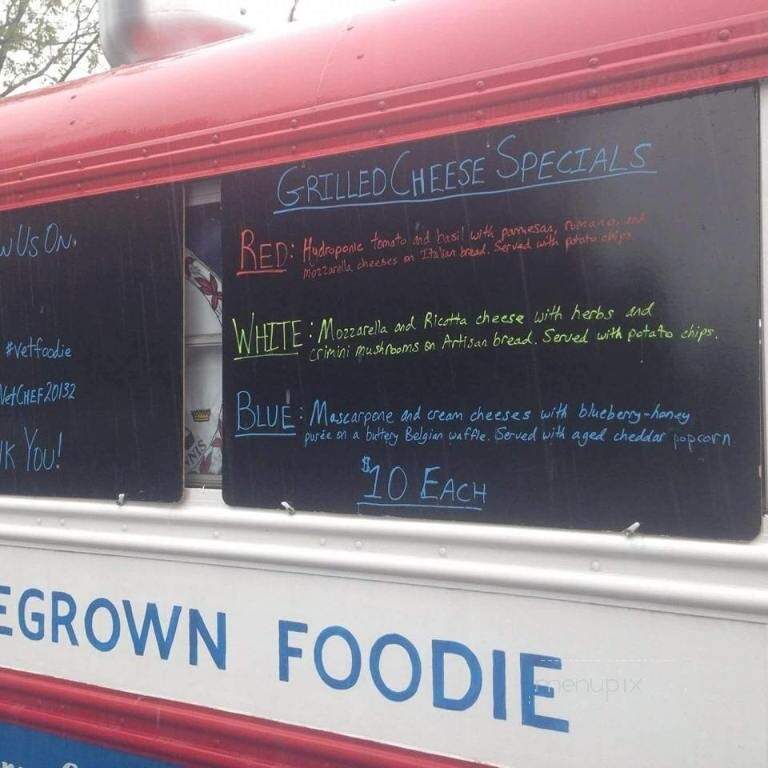 Us On.
#Vetfoodie
VetCHEF20132
You!
GRILLED CHEESE SPECIALS
RED: Hydroponic tomato and basil with parmesan, romano, and
mozzarella cheeses on Italian bread. Served with potato chips.
WHITE: Mozzarella and Ricotta cheese with herbs and
crimini mushrooms on Artisan bread. Served with potato chips.
BLUE: Mascarpone and cream cheeses with blueberry-honey
purée on a buttery Belgian waffle. Served with aged cheddar popcorn
$10 EACH
EGROWN FOODIE
menupix